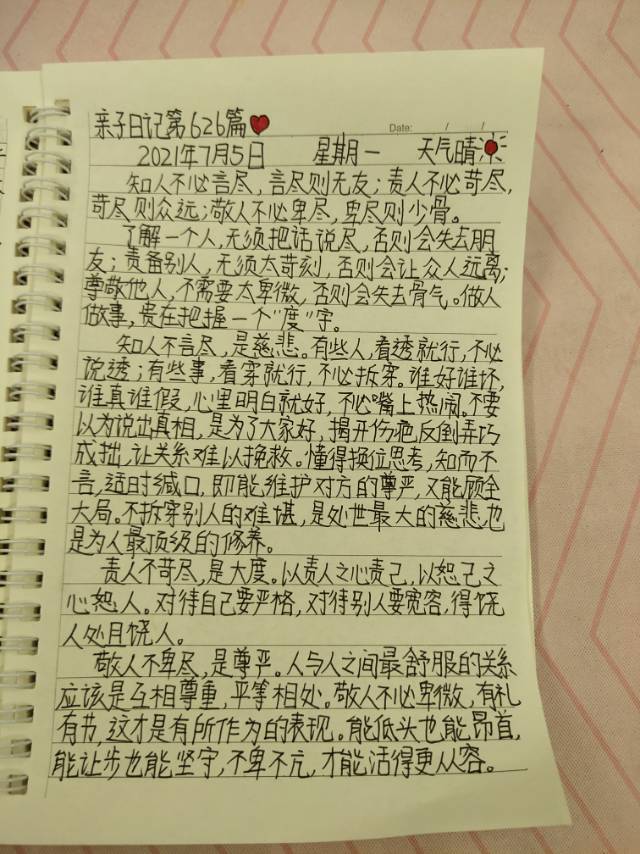 亲子日记第626篇
Date: / /
2021年7月5日 星期一 天气晴
知人不必言尽,言尽则无友;责人不必苛尽,
苛尽则众远;敬人不必卑尽,卑尽则少骨。
了解一个人,无须把话说尽,否则会失去朋
友;责备别人,无须太苛刻,否则会让众人远离;
尊敬他人,不需要太卑微,否则会失去骨气。做人
做事,贵在把握一个"度"字。
知人不言尽,是慈悲。有些人,看透就行,不必
说透;有些事,看穿就行,不必拆穿。谁好谁坏,
谁真谁假,心里明白就好,不必嘴上热闹。不要
以为说出真相,是为了大家好,揭开伤疤反倒弄巧
成拙,让关系难以挽救。懂得换位思考,知而不
言,适时缄口,即能维护对方的尊严,又能顾全
大局。不拆穿别人的难堪,是处世最大的慈悲,也
是为人最顶级的修养。
责人不苛尽,是大度。以责人之心责己,以恕己之
心恕人。对待自己要严格,对待别人要宽容,得饶
人处且饶人。
敬人不卑尽,是尊严。人与人之间最舒服的关系
应该是互相尊重,平等相处。敬人不必卑微,有礼
有节,这才是有所作为的表现。能低头也能昂首,
能让步也能坚守,不卑不亢,才能活得更从容。